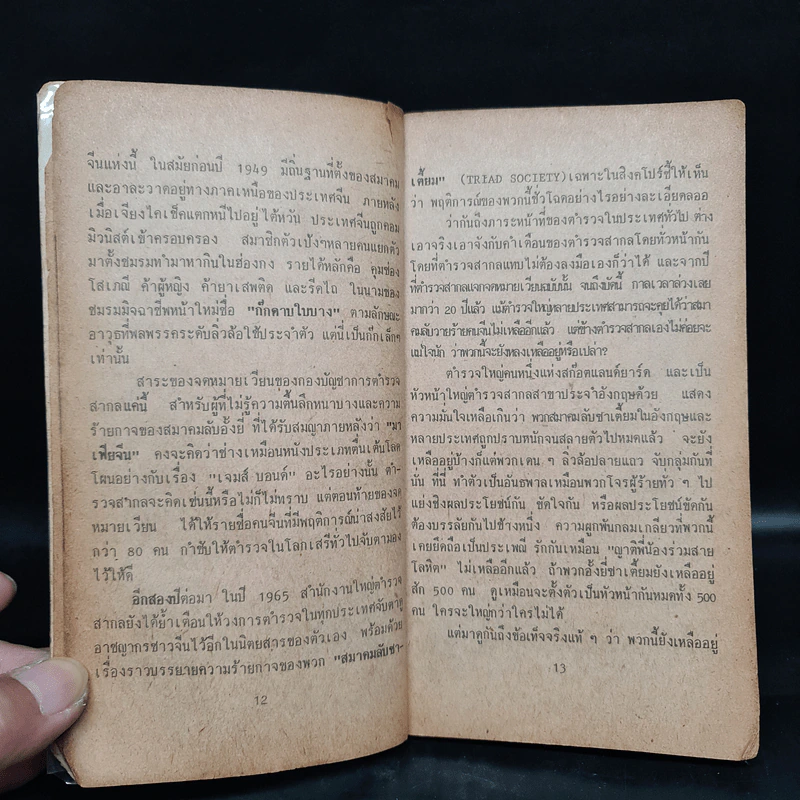 จีนแห่งนี้ ในสมัยก่อนปี 1949 มีถิ่นฐานที่ตั้งของสมาคม
และอาละวาดอยู่ทางภาคเหนือของประเทศจีน ภายหลัง
เมื่อเจียงไคเช็คแตกหนีไปอยู่ไต้หวัน ประเทศจีนถูกคอม
มิวนิสต์เข้าครอบครอง สมาชิกตัวเป้งๆหลายคนแยกตัว
มาตั้งชมรมทำมาหากินในฮ่องกง รายได้หลักคือ คุมซ่อง
โสเภณี ค้าผู้หญิง ค้ายาเสพติด และรีดไถ ในนามของ
ชมรมมิจฉาชีพหน้าใหม่ชื่อ "ก๊กดาบใบบาง" ตามลักษณะ
อาวุธที่พลพรรคระดับลิ่วล้อใช้ประจำตัว แต่นี่เป็นก๊กเล็กๆ
เท่านั้น
สาระของจดหมายเวียนของกองบัญชาการตำรวจ
สากลแค่นี้ สำหรับผู้ที่ไม่รู้ความตื้นลึกหนาบางและความ
ร้ายกาจของสมาคมลับอั้งยี่ ที่ได้รับสมญาภายหลังว่า "มา
เฟียจีน" คงจะคิดว่าช่างเหมือนหนังประเภทตื่นเต้นโลด
โผนอย่างกับเรื่อง "เจมส์ บอนด์" อะไรอย่างนั้น ตำ-
รวจสากลจะคิดเช่นนี้หรือไม่ก็ไม่ทราบ แต่ตอนท้ายของจด
หมายเวียน ได้ให้รายชื่อคนจีนที่มีพฤติการณ์น่าสงสัยไว้
กว่า 80 คน กำชับให้ตำรวจในโลกเสรีทั่วไปจับตามอง
ไว้ให้ดี
อีกสองปีต่อมา ในปี 1965 สำนักงานใหญ่ตำรวจ
สากลยังได้ย้ำเตือนให้วงการตำรวจในทุกประเทศจับตาดู
อาชญากรชาวจีนไว้อีกในนิตยสารของตัวเอง พร้อมด้วย
เรื่องราวบรรยายความร้ายกาจของพวก "สมาคมลับซา-
12
เตี้ยม" (TRIAD SOCIETY) เฉพาะในสิงคโปร์ชี้ให้เห็น
ว่า พฤติการณ์ของพวกนี้ชั่วโฉดอย่างไรอย่างละเอียดลออ
ว่ากันถึงภาระหน้าที่ของตำรวจในประเทศทั่วไป ต่าง
เอาจริงเอาจังกับคำเตือนของตำรวจสากลโดยทั่วหน้ากัน
โดยที่ตำรวจสากลแทบไม่ต้องลงมือเองก็ว่าได้ และจากปี
ที่ตำรวจสากลแจกจดหมายเวียนฉบับนั้น จนถึงบัดนี้ กาลเวลาล่วงเลย
มากว่า 20 ปีแล้ว แม้ตำรวจใหญ่หลายประเทศสามารถจะคุยได้ว่าสมา
คมลับวายร้ายคนจีนไม่เหลืออีกแล้ว แต่ข้างตำรวจสากลเองไม่ค่อยจะ
แน่ใจนัก ว่าพวกนี้จะยังหลงเหลืออยู่หรือเปล่า?
ตำรวจใหญ่คนหนึ่งแห่งสก๊อตแลนด์ยาร์ด และเป็น
หัวหน้าใหญ่ตำรวจสากลสาขาประจำอังกฤษด้วย แสดง
ความมั่นใจเหลือเกินว่า พวกสมาคมลับซาเตี้ยมในอังกฤษและ
หลายประเทศถูกปราบหนักจนสลายตัวไปหมดแล้ว จะยัง
เหลืออยู่บ้างก็แต่พวกเดน ๆ ลิ่วล้อปลายแถว จับกลุ่มกันที่
นั่น ที่นี่ ทำตัวเป็นอันธพาลเหมือนพวกโจรผู้ร้ายทั่ว ๆ ไป
แย่งชิงผลประโยชน์กัน ขัดใจกัน หรือผลประโยชน์ขัดกัน
ต้องบรรลัยกันไปข้างหนึ่ง ความผูกพันกลมเกลียวที่พวกนี้
เคยยึดถือเป็นประเพณี รักกันเหมือน "ญาติพี่น้องร่วมสาย
โลหิต" ไม่เหลืออีกแล้ว ถ้าพวกอั้งยี่ซาเตี้ยมยังเหลืออยู่
สัก 500 คน ดูเหมือนจะตั้งตัวเป็นหัวหน้ากันหมดทั้ง 500
คน ใครจะใหญ่กว่าใครไม่ได้
แต่มาดูกันถึงข้อเท็จจริงแท้ ๆ ว่า พวกนี้ยังเหลืออยู่
13